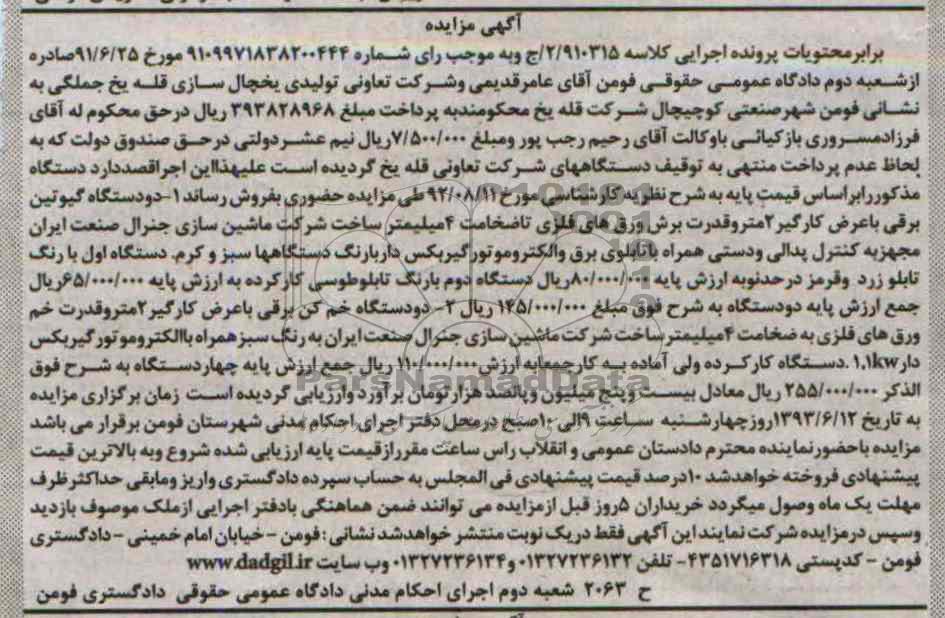 آگهی مزایده
برابر محتویات پرونده اجرایی کلاسه ۲/۹۱۰۳۱۵/ج وبه موجب رای شماره ۹۱۰۹۹۷۱۸۳۸۲۰۰۴۴۴ مورخ ۹۱/۶/۲۵صادره
ازشعبه دوم دادگاه عمومی حقوقی فومن آقای عامرقدیمی وشرکت تعاونی تولیدی یخچال سازی قله یخ جملگی به
نشانی فومن شهرصنعتی کوچیچال شرکت قله یخ محکومندبه پرداخت مبلغ ۳۹۳۸۲۸۹۶۸ ریال درحق محکوم له آقای
فرزادمسروری بازکیائی باوکالت آقای رحیم رجب پور ومبلغ ۷/۵۰۰/۰۰۰ریال نیم عشردولتی درحق صندوق دولت که به
لحاظ عدم پرداخت منتهی به توقیف دستگاههای شرکت تعاونی قله یخ گردیده است علیهذااین اجراقصددارد دستگاه
مذکوررابراساس قیمت پایه به شرح نظریه کارشناسی مورخ ۹۲/۰۸/۱۱ طی مزایده حضوری بفروش رساند۱-دودستگاه گیوتین
برقی باعرض کارگیر۲متروقدرت برش ورق های فلزی تاضخامت ۴میلیمتر ساخت شرکت ماشین سازی جنرال صنعت ایران
مجهزبه کنترل پدالی ودستی همراه باتابلوی برق والکتروموتورگیربکس داربارنگ دستگاهها سبز و کرم. دستگاه اول با رنگ
تابلو زرد وقرمز درحدنوبه ارزش پایه ۸۰/۰۰۰/۰۰۰ریال دستگاه دوم بارنگ تابلوطوسی کارکرده به ارزش پایه ۶۵/۰۰۰/۰۰۰ریال
جمع ارزش پایه دودستگاه به شرح فوق مبلغ ۱۴۵/۰۰۰/۰۰۰ ریال ۲- دودستگاه خم کن برقی باعرض کارگیر۲متروقدرت خم
ورق های فلزی به ضخامت ۴میلیمترساخت شرکت ماشین سازی جنرال صنعت ایران به رنگ سبزهمراه باالکتروموتورگیربکس
دار۱.۱kw .دستگاه کارکرده ولی آماده به کارجمعابه ارزش ۱۱۰/۰۰۰/۰۰۰ ریال جمع ارزش پایه چهاردستگاه به شرح فوق
الذکر ۲۵۵/۰۰۰/۰۰۰ ریال معادل بیست وپنج میلیون وپانصد هزارتومان برآورد وارزیابی گردیده است زمان برگزاری مزایده
به تاریخ ۱۳۹۳/۶/۱۲روزچهارشنبه ساعت ۹الی ۱۰صبح درمحل دفتر اجرای احکام مدنی شهرستان فومن برقرار می باشد
مزایده باحضورنماینده محترم دادستان عمومی و انقلاب راس ساعت مقررازقیمت پایه ارزیابی شده شروع وبه بالاترین قیمت
پیشنهادی فروخته خواهدشد ۱۰درصد قیمت پیشنهادی فی المجلس به حساب سپرده دادگستری واریز ومابقی حداکثرظرف
مهلت یک ماه وصول میگردد خریداران ۵روز قبل ازمزایده می توانند ضمن هماهنگی بادفتر اجرایی ازملک موصوف بازدید
وسپس درمزایده شرکت نمایند این آگهی فقط دریک نوبت منتشر خواهدشد نشانی : فومن - خیابان امام خمینی - دادگستری
فومن - کدپستی ۴۳۵۱۷۱۶۳۱۸- تلفن ۰۱۳۲۷۲۳۶۱۳۲ و۰۱۳۲۷۲۳۶۱۳۴ وب سایت www.dadgil.ir
ح ۲۰۶۳ شعبه دوم اجرای احکام مدنی دادگاه عمومی حقوقی دادگستری فومن
ParsNamadData